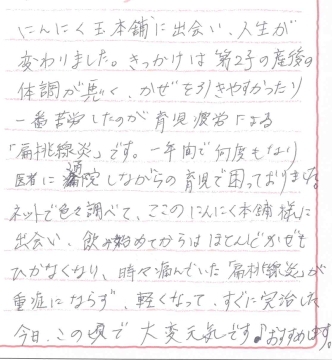 にんにく玉本舗に出会い、人生が
変わりました。きっかけは第2子の産後の
体調が悪く、かぜを引きやすかったり
一番苦労したのが育児疲労による
「扁桃線炎」です。一年間で何度もなり
医者に通院しながらの育児で困っておりました。
ネットで色々調べて、ここのにんにく本舗様に
出会い、飲み始めてからはほとんどかぜも
ひかなくなり、時々痛んでいた「扁桃線炎」が
重症にならず、軽くなって、すぐに完治した
今日、この頃で大変元気です♪おすすめです。